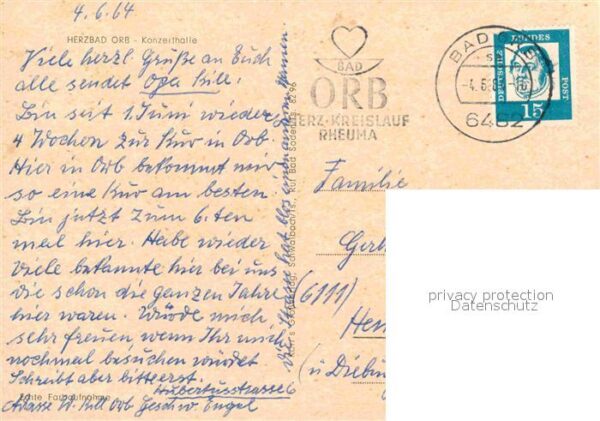 4.6.64
HERZBAD ORB - Konzerthalle
Viele herzl. Grüße an Euch
alle sendet Opa Kill.
Bin seit 1. Juni wieder
4 Wochen zur Kur in Orb.
Hier in Orb bekommt mir
so eine Kur am besten
Bin jetzt zum 6. ten
mal hier. Habe wieder
viele bekannte hier bei uns
die schon die ganzen Jahre
hier waren. Würde mich
sehr freuen, wenn Ihr mich
nochmal besuchen würdet
Schreibt aber bitte erst.
Hubertusstrasse 6
Echte Farbaufnahme
Adresse W. Kill Orb Geschw. Engel
BAD
ORB
HERZ-KREISLAUF
RHEUMA
BAD ORB
-4.6.
6482
DEUTSCHE
BUNDES
POST
15
Familie
Gerb
(6111)
Hen
(u Diebur
privacy protection
Datenschutz